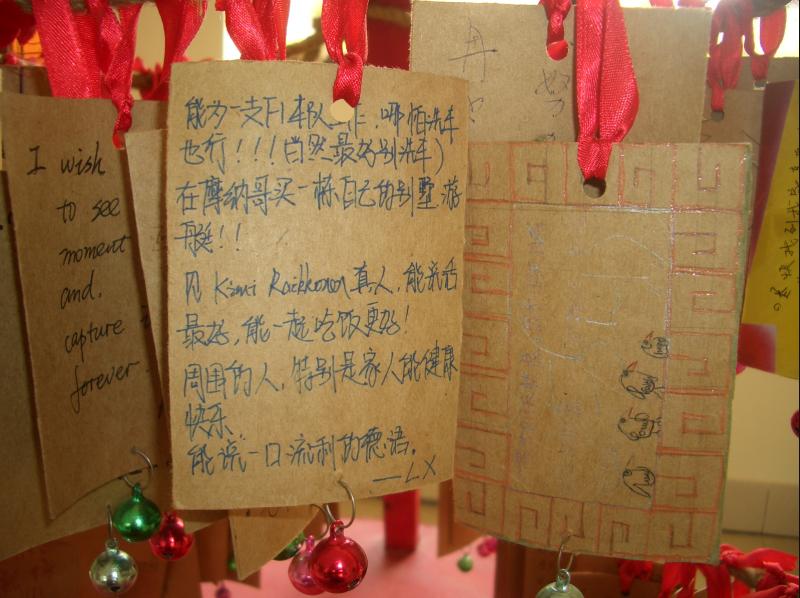 I wish
to see
moment
and
capture
forever
能为一支F1车队工作,哪怕洗车
也行!!!(当然最好别洗车)
在摩纳哥买一栋自己的别墅游
艇!!
见Kimi Raikkonen真人,能说话
最好,能一起吃饭更好!
周围的人,特别是家人能健康
快乐.
能说一口流利的德语.
——LX